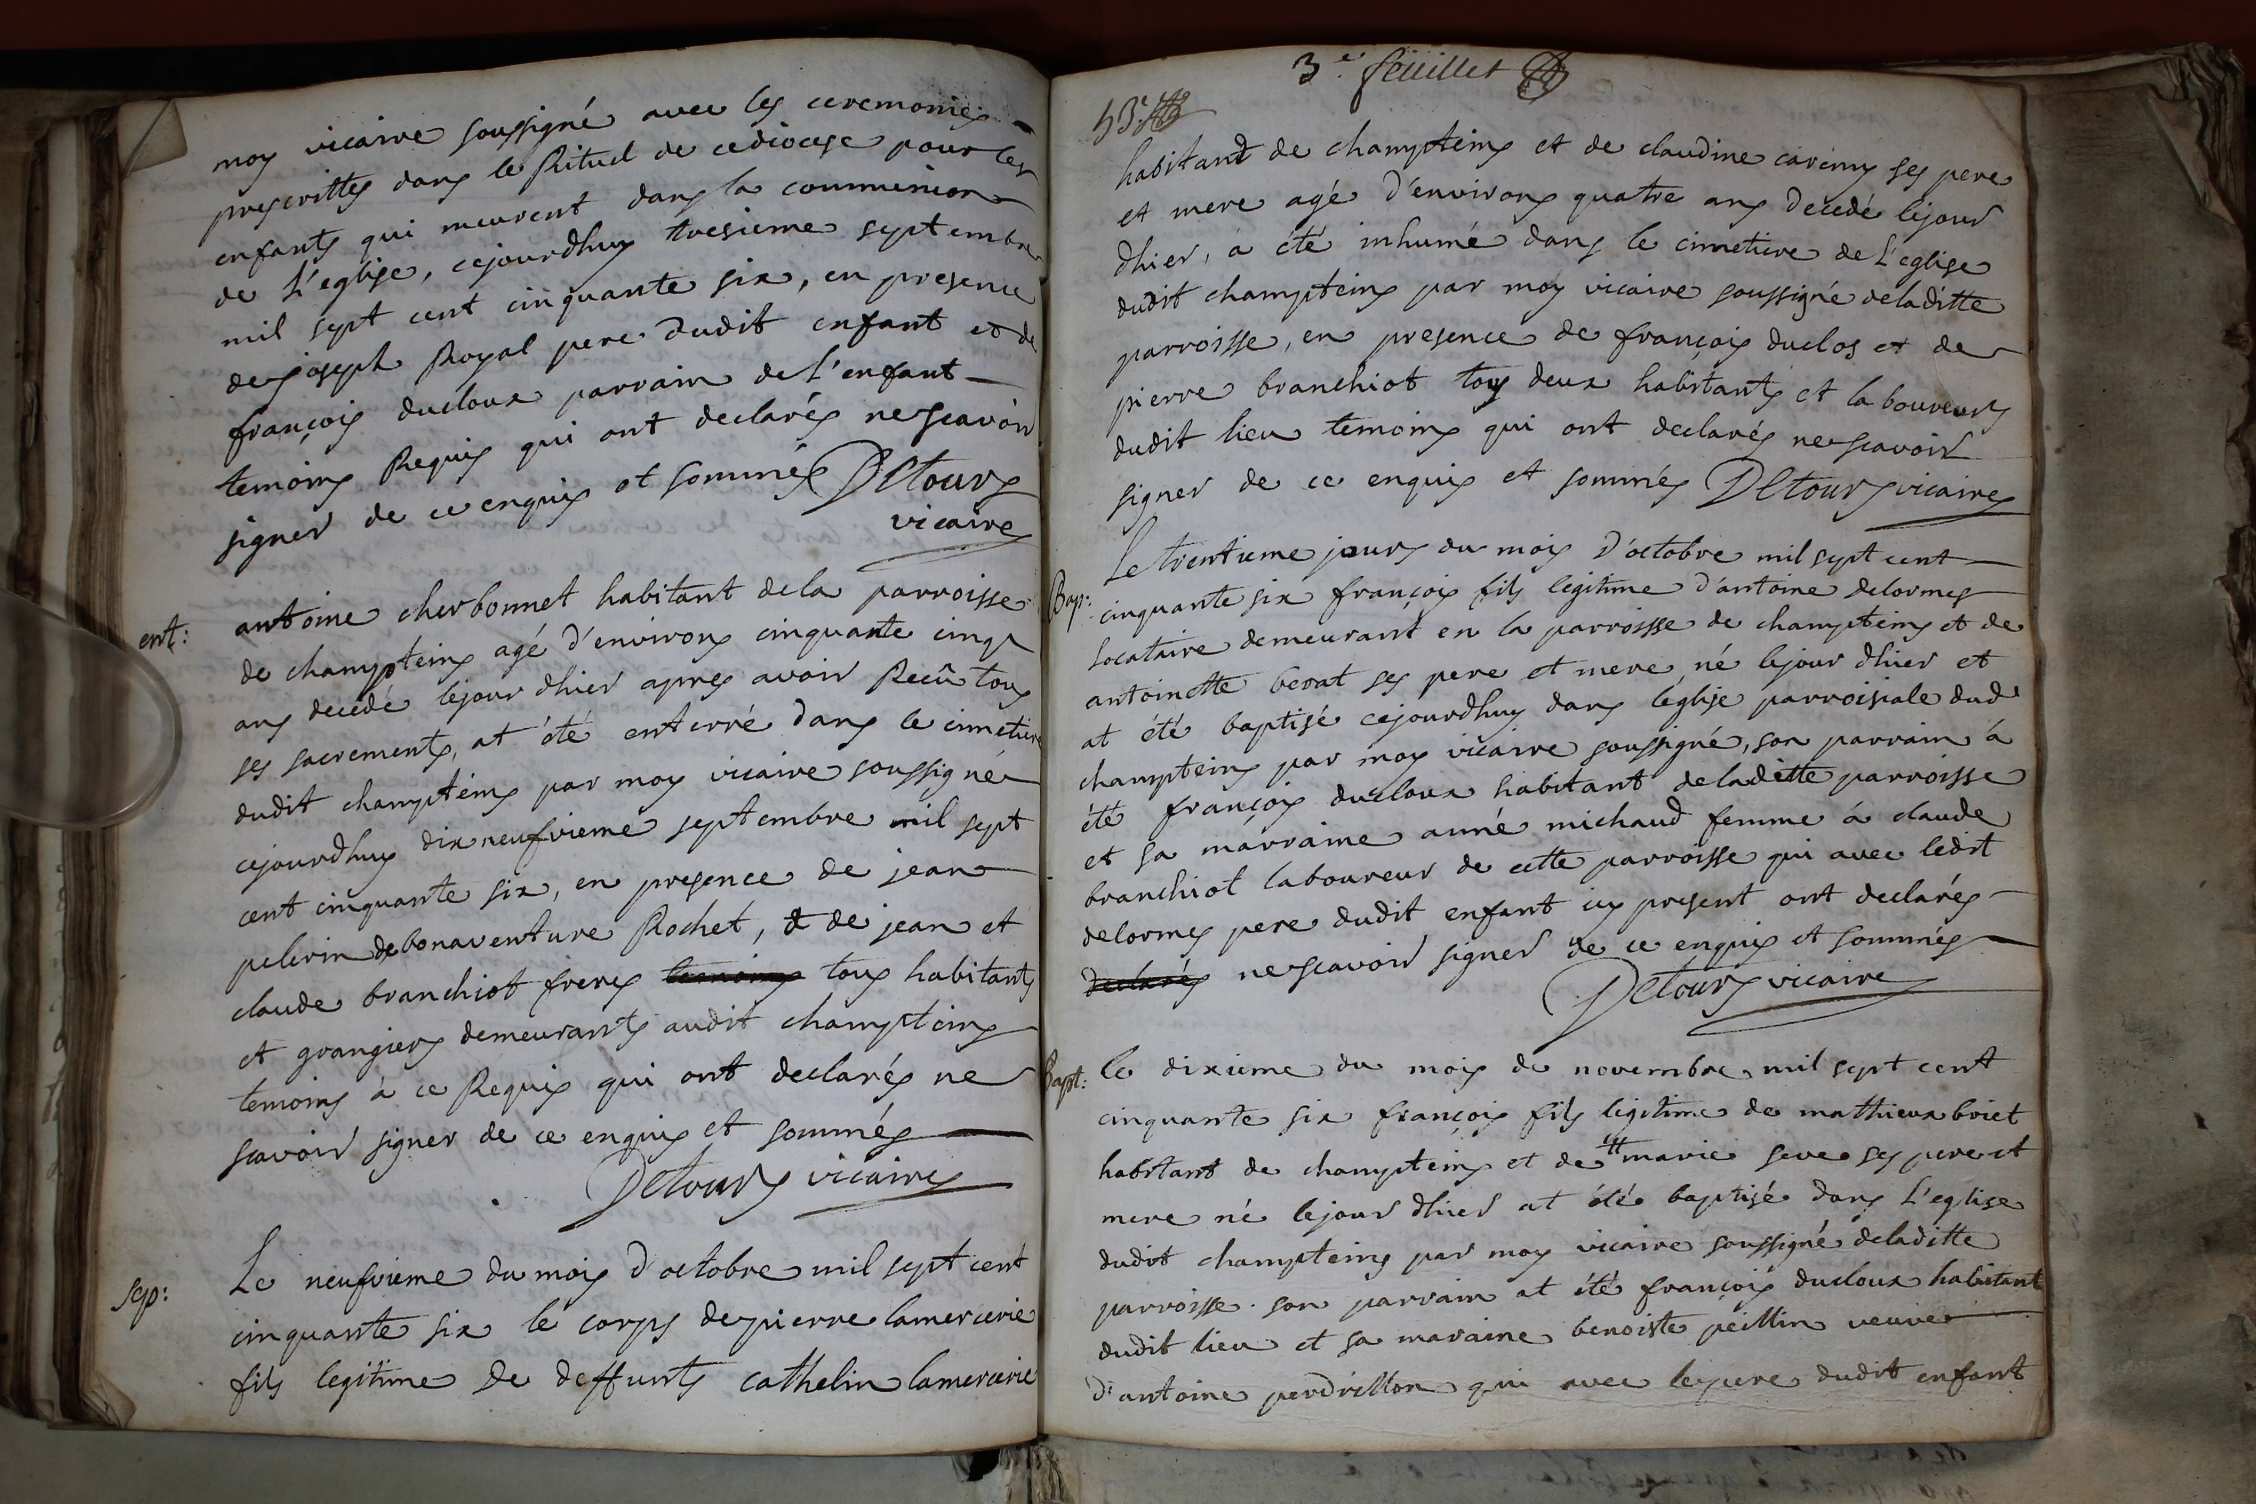 moy vicaire soussigné avec les ceremonies
prescrittes dans le Rituel de cediocese pour les
enfants qui meurent dans la communion
de L'eglise, cejourdhuy tresieme septembre
mil sept cent cinquante six, en presence
de joseph Royal pere dudit enfant et de
françois ducloux parrain de L'enfant
temoins Requis qui ont declarés nesçavoir
signer de ce enquis et sommés Detours
vicaire
ent:
antoine cherbonnet habitant dela parroisse
de champteins agé d'environs cinquante cinq
ans decedé lejour dhier apres avoir Recû tous
ses sacrements, at été enterré dans le cimetiere
dudit champteins par moy vicaire soussigné
cejourdhuy dixneufvieme septembre mil sept
cent cinquante six, en presence de jean
pelerin de bonaventure Rochet, & de jean et
claude branchiot freres temoins tous habitants
et grangiers demeurants audit champteins
temoins à ce Requis qui ont declarés ne
scavoir signer de ce enquis et sommés
Detours vicaire
sep:
Le neufvieme du mois d'octobre mil sept cent
cinquante six le corps depierre lamercerie
fils legitime De deffunts cathelin lamercerie
3e. feüillet
habitant de champteins et de claudine ses pere
et mere agé d'environs quatre ans decedé lejour
dhier, a été inhumé dans le cimetiere de L'eglise
dudit champteins par moy vicaire soussigné deladitte
parroisse, en presence de françois duclos et de
pierre branchiot tous deux habitants et laboureurs
dudit lieu temoins qui ont declarés nescavoir
signer de ce enquis et sommés Detours vicaire
Bap:
Le trentieme jours du mois D'octobre mil sept cent
cinquante six françois fils legitime d'antoine delormes
locataire demeurant en la parroisse de champteins et de
antoinette berat ses pere et mere, né lejour dhier et
at été baptisé cejourdhuy dans leglise parroisiale dud
champteins par moy vicaire soussigné, son parrain à
été françois ducloux habitant deladitte parroisse
et sa marraine anné michaud femme à claude
branchiot laboureur de cette parroisse qui avec ledit
delormes pere dudit enfant icy present ont declarés
declarés nescavoir signer de ce enquis et sommés
Detours vicaire
Bapt:
le dixieme du mois de novembre mil sept cent
cinquante six françois fils legitime de mathieux boiet
habitant de champteins et de marie seve ses pere et
mere né lejour dhier at été baptisé dans L'eglise
dudit champteins par moy vicaire soussigné deladitte
parroisse. son parrain at été françois ducloux habitant
dudit lieu et sa maraine benoiste peillin veuve
d'antoine perdrillon qui avec lepere dudit enfant